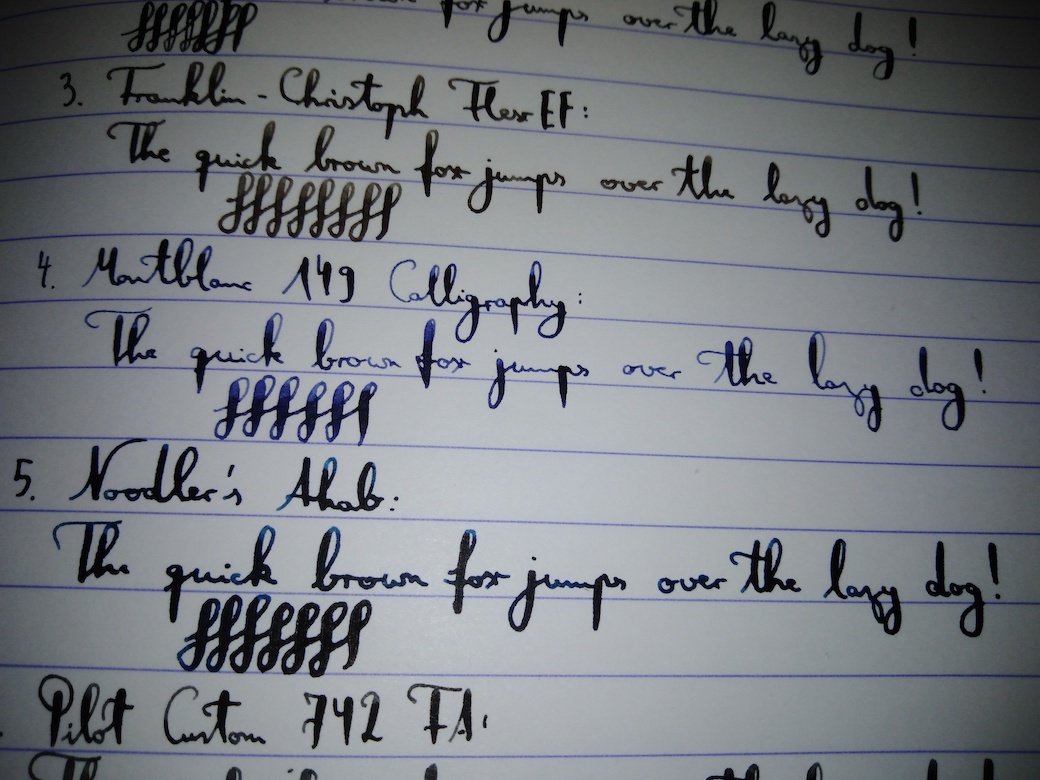 fox jumps over the lazy dog!
3. Franklin-Christoph Flex EF:
The quick brown fox jumps over the lazy dog!
4. Montblanc 149 Calligraphy:
The quick brown fox jumps over the lazy dog!
5. Noodler's Ahab:
The quick brown fox jumps over the lazy dog!
Pilot Custom 742 FA: